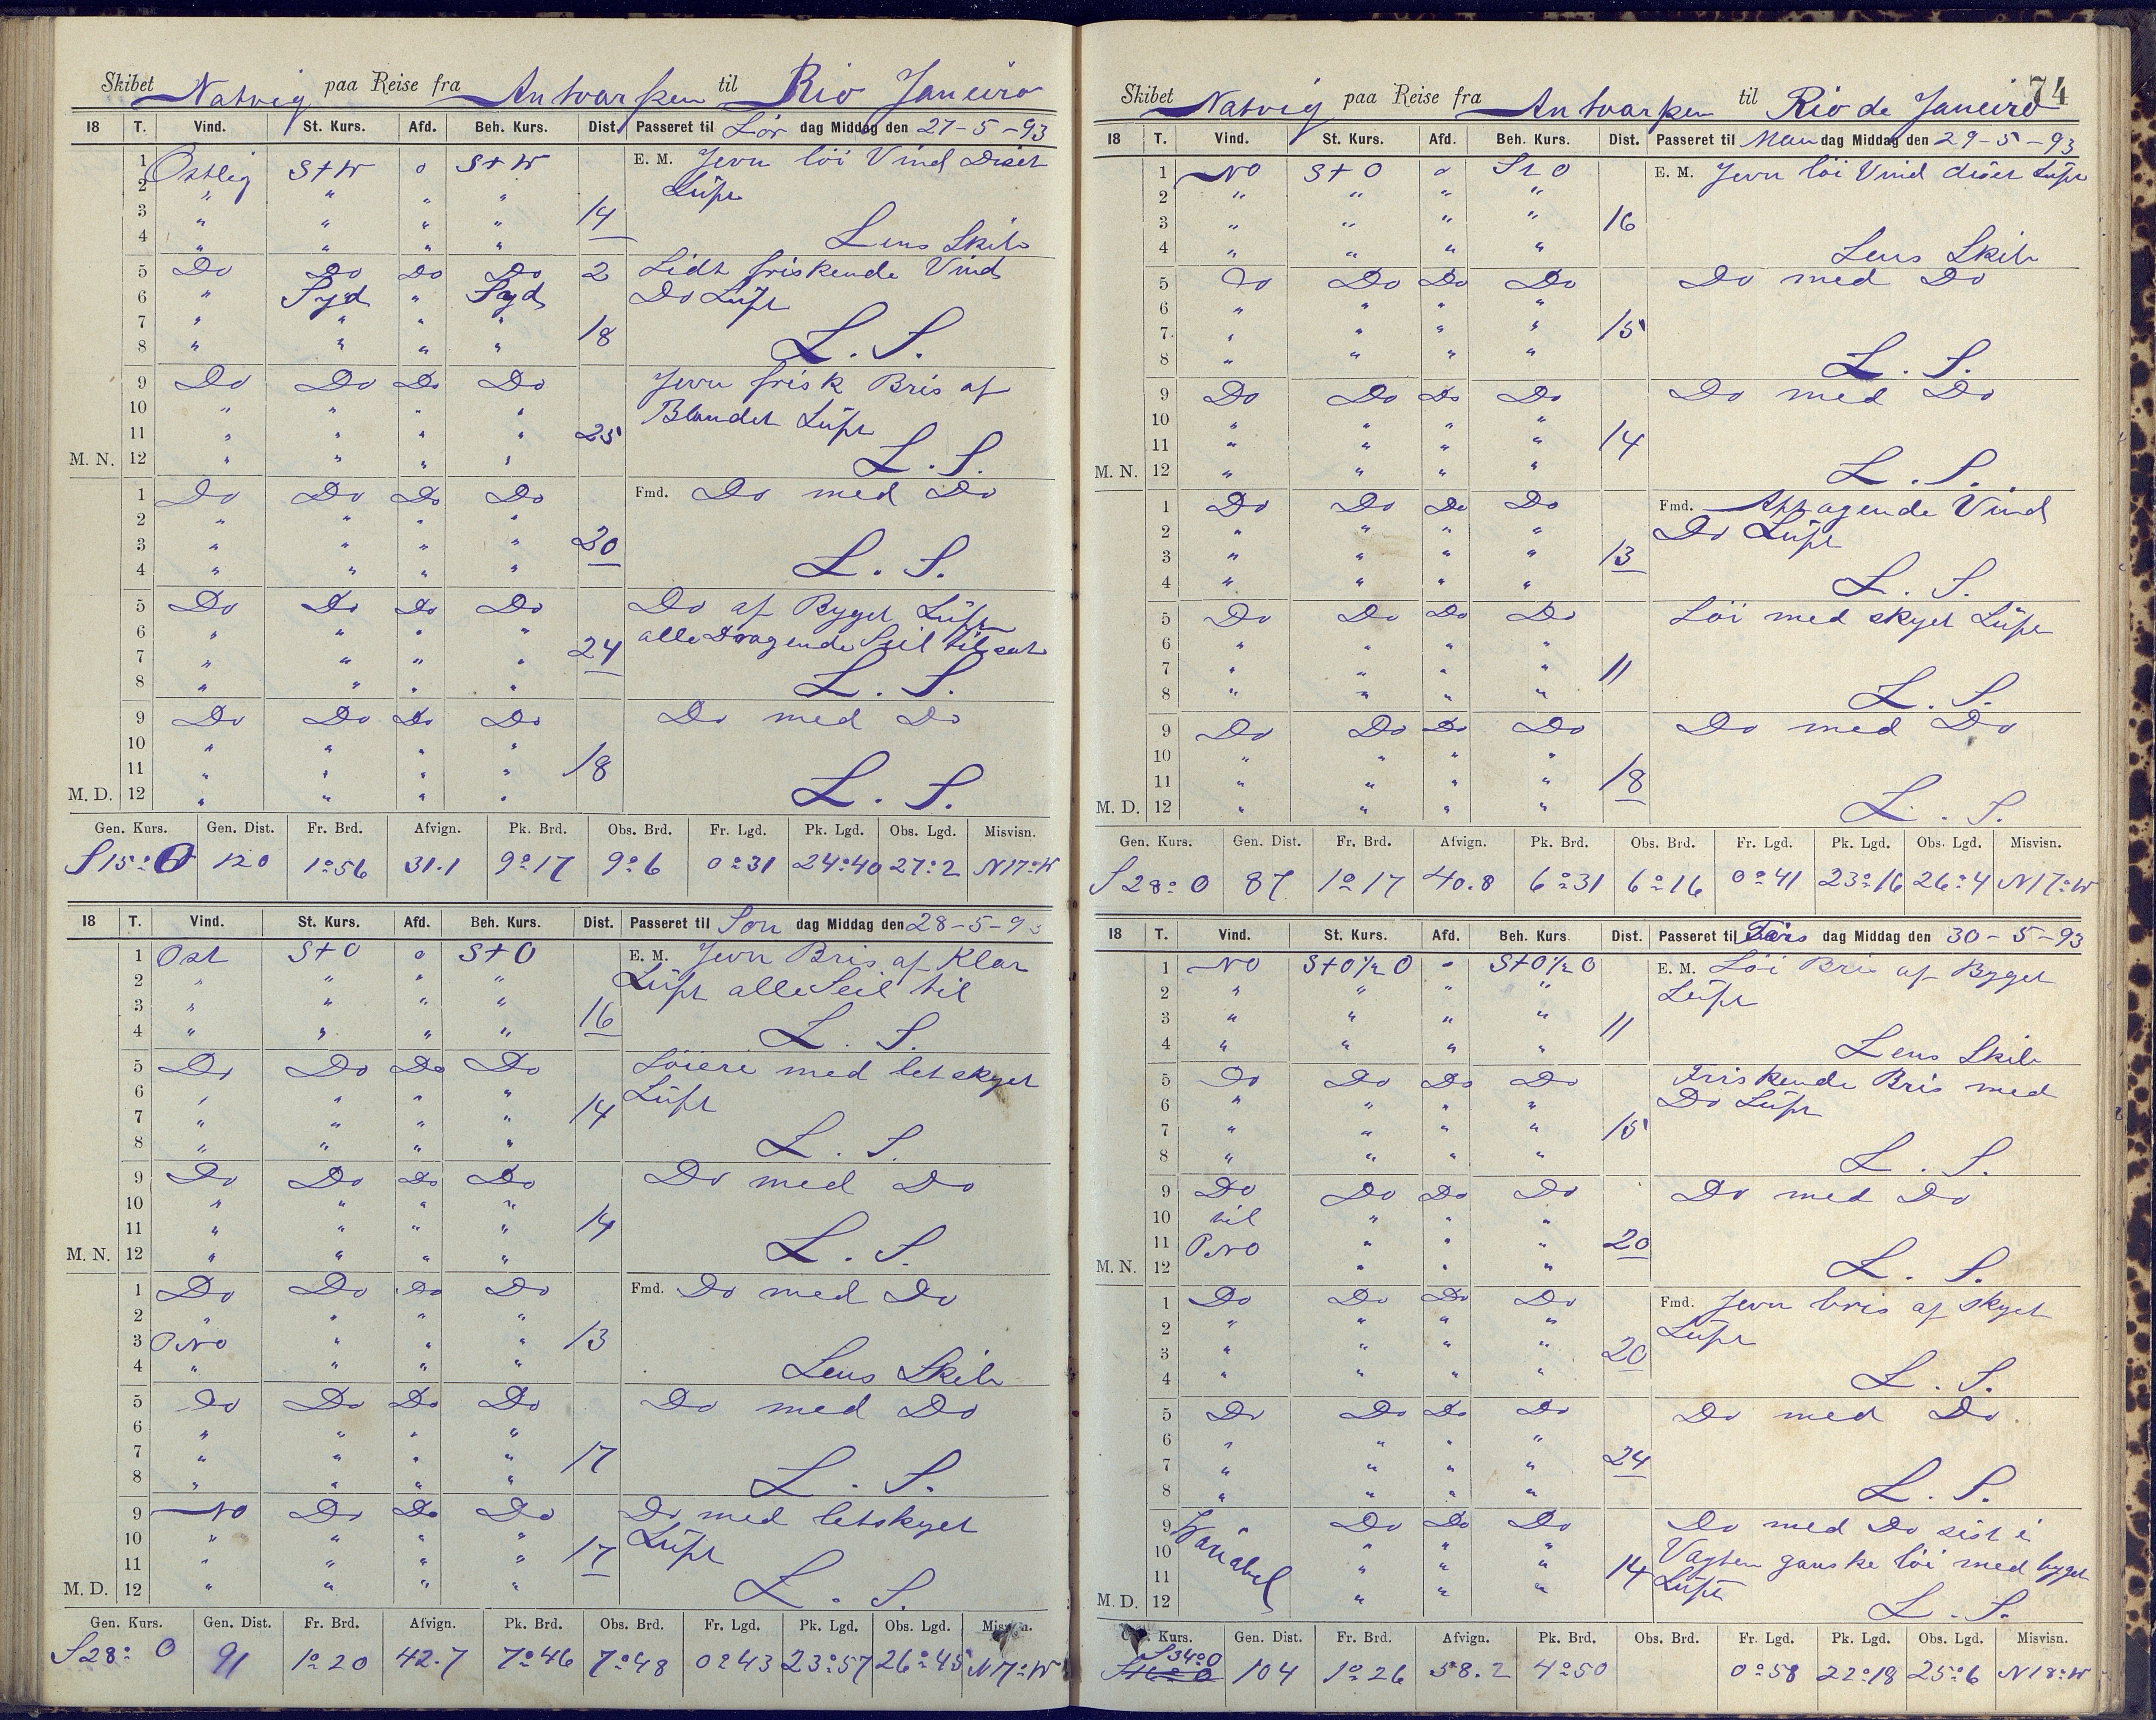 Skibet Natvig paa Reise fra Antvarpen til Rio Janeiro
18 T. Vind. St. Kurs. Afd. Beh. Kurs. Dist. Passeret til Lör dag Middag den 27-5-93
1 Östlig S+W 0 S+W E. M. Jevn löi Vind Diset
2 " " " " Lüft
3 " " " " 14
4 " " " " Lens Skib
5 Do Do Do Do 2 Lidt friskende Vind
6 " Syd " Syd Do Lüft
7 " " " " 18
8 " " " " L. S.
9 Do Do Do Do Jevn frisk Bris af
10 " " " " Blandet Lüft
11 " " " " 25
M. N. 12 " " " " L. S.
1 Do Do Do Do Fmd. Do med Do
2 " " " "
3 " " " " 20
4 " " " " L. S.
5 Do Do Do Do Do af Byget Lüft
6 " " " " alle Dragende Seil tilsat
7 " " " " 24
8 " " " " L. S.
9 Do Do Do Do Do med Do
10 " " " "
11 " " " " 18
M. D. 12 " " " " L. S.
Gen. Kurs. Gen. Dist. Fr. Brd. Afvign. Pk. Brd. Obs. Brd. Fr. Lgd. Pk. Lgd. Obs. Lgd. Misvisn.
S15°O 120 1°56 31.1 9°17 9°6 0°31 24°40 27°2 N17°W
18 T. Vind. St. Kurs. Afd. Beh. Kurs. Dist. Passeret til Søn dag Middag den 28-5-93
1 Ost S+O 0 S+O E. M. Jevn Bris af Klar
2 " " " " Lüft alle Seil til
3 " " " " 16
4 " " " " L. S.
5 Do Do Do Do Löiere med letskyet
6 " " " " Lüft
7 " " " " 14
8 " " " " L. S.
9 Do Do Do Do Do med Do
10 " " " "
11 " " " " 14
M. N. 12 " " " " L. S.
1 Do Do Do Do Fmd. Do med Do
2 " " " "
3 ONO " " " 13
4 " " " " Lens Skib
5 Do Do Do Do Do med Do
6 " " " "
7 " " " " 17
8 " " " " L. S.
9 NO Do Do Do Do med letskyet
10 " " " " Lüft
11 " " " " 17
M. D. 12 " " " " L. S.
Gen. Kurs. Gen. Dist. Fr. Brd. Afvign. Pk. Brd. Obs. Brd. Fr. Lgd. Pk. Lgd. Obs. Lgd. Misvisn.
S28° O 91 1°20 42.7 7°46 7°48 0°43 23°57 26°45 N17°W
74
Skibet Natvig paa Reise fra Antvarpen til Rio de Janeiro
18 T. Vind. St. Kurs. Afd. Beh. Kurs. Dist. Passeret til Man dag Middag den 29-5-93
1 NO S+O 0 S+O E. M. Jevn löi Vind diset Lüft
2 " " " "
3 " " " " 16
4 " " " " Lens Skib
5 Do Do Do Do Do med Do
6 " " " "
7 " " " " 15
8 " " " " L. S.
9 Do Do Do Do Do med Do
10 " " " "
11 " " " " 14
M. N. 12 " " " " L. S.
1 Do Do Do Do Fmd. Aftagende Vind
2 " " " " Do Lüft
3 " " " " 13
4 " " " " L. S.
5 Do Do Do Do Löi med skyet Lüft
6 " " " "
7 " " " " 11
8 " " " " L. S.
9 Do Do Do Do Do med Do
10 " " " "
11 " " " " 18
M. D. 12 " " " " L. S.
Gen. Kurs. Gen. Dist. Fr. Brd. Afvign. Pk. Brd. Obs. Brd. Fr. Lgd. Pk. Lgd. Obs. Lgd. Misvisn.
S28° O 87 1°17 40.8 6°31 6°16 0°41 23°16 26°4 N17°W
18 T. Vind. St. Kurs. Afd. Beh. Kurs Dist. Passeret til dag Middag den 30-5-93
1 NO S+O½O " S+O½O E. M. Löi Bris af Byget
2 " " " " Lüft
3 " " " " 11
4 " " " " Lens Skib
5 Do Do Do Do Friskende Bris med
6 " " " " Do Lüft
7 " " " " 15
8 " " " " L. S.
9 Do Do Do Do Do med Do
10 til " " "
11 ONO " " " 20
M. N. 12 " " " L. S.
1 Do Do Do Do Fmd. Jevn bris af skyet
2 " " " " Lüft
3 " " " " 20
4 " " " " L. S.
5 Do Do Do Do Do med Do
6 " " " "
7 " " " " 24
8 " " " " L. S.
9 Variabel Do Do Do Do med Do sist i
10 " " " Vagten ganske löi med byget
11 " " " 14 Lüft
M. D. 12 " " " L. S.
Kurs. Gen. Dist. Fr. Brd. Afvign. Pk. Brd. Obs. Brd. Fr. Lgd. Pk. Lgd. Obs. Lgd. Misvisn.
S34°O 104 1°26 58.2 4°50 0°58 22°18 25°6 N18°W